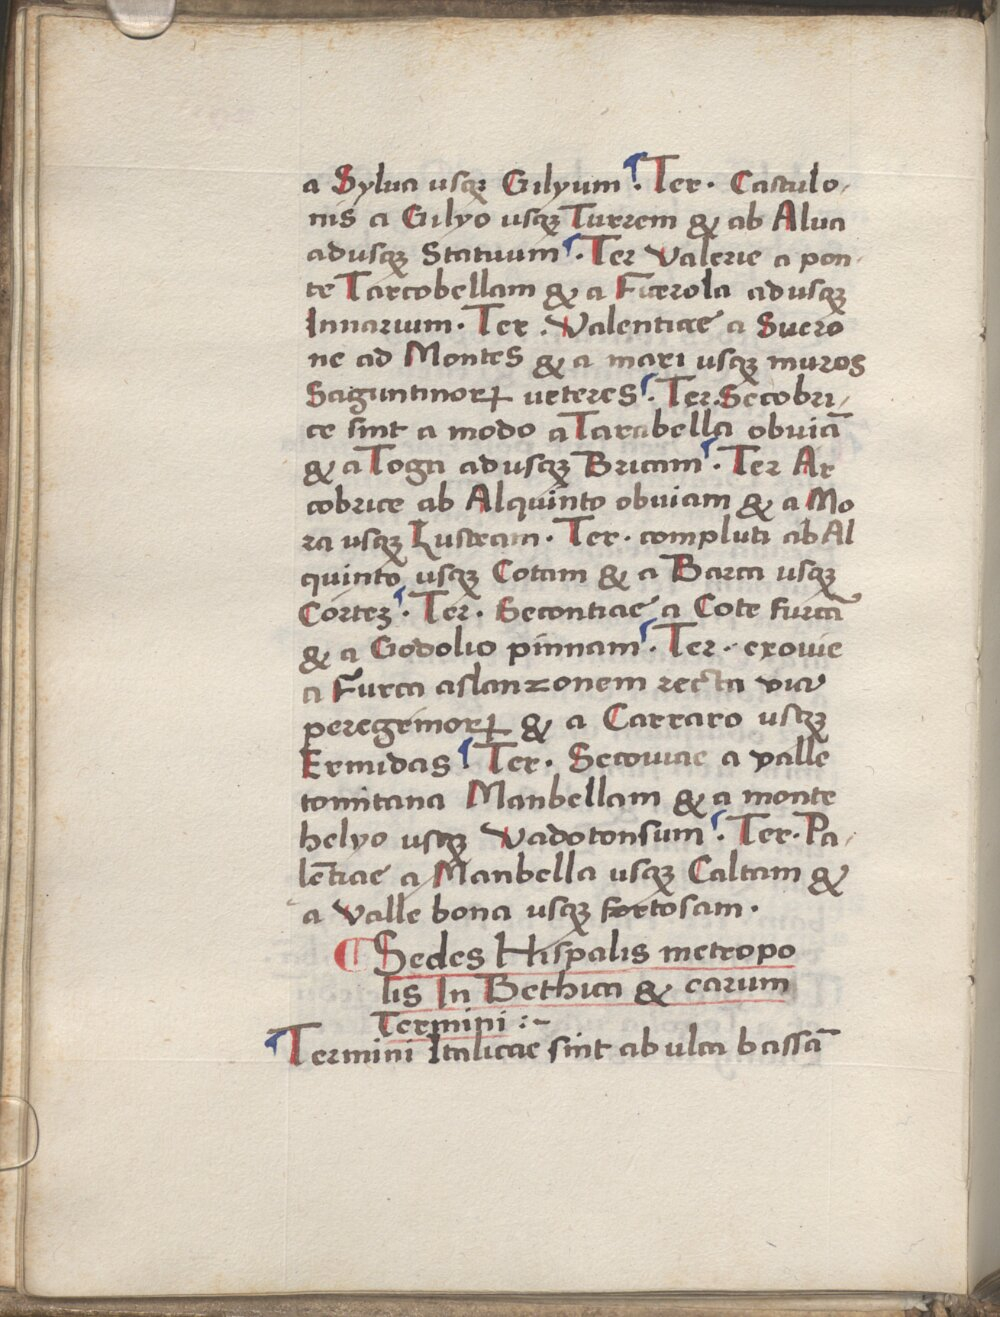 a Sylua usqȝ Gilyum. Ter. Castulo,
nis a Gilyo usqȝ Turrem & ab Alua
adusqȝ Statuum. Ter Valerie a pon-
te Tarcobellam & a Fixrola adusqȝ
Innarium. Ter. Valentiae a Suero
ne ad Montes & a mari usqȝ muros
Saguntinorꝝ ueteres. Ter. Secobri,
ce sint a modo a Tarabella obuiā
& a Toga adusqȝ Bricam. Ter Ar
cobrice ab Alquinto obuiam & a Mo
ra usqȝ Lustram. Ter. compluti ab Al
quinto usqȝ Cotam & a Barca usqȝ
Cortez. Ter. Secontiae a Cote furcā
& a Godolio pinnam. Ter. exouie
a Furca aslanzonem recta via
peregrinorꝝ & a Carraro usqȝ
Ermidas. Ter. Secouiae a valle
tomitana Manbellam & a monte
helyo usqȝ Vadotonsum. Ter. Pa,
lētiae a Manbella usqȝ Caltam &
a Valle bona usqȝ fortosam.
¶ Sedes Hispalis metropo
lis In Bethica & earum
Termini :~
Termini Italicae sint ab ulca bassā